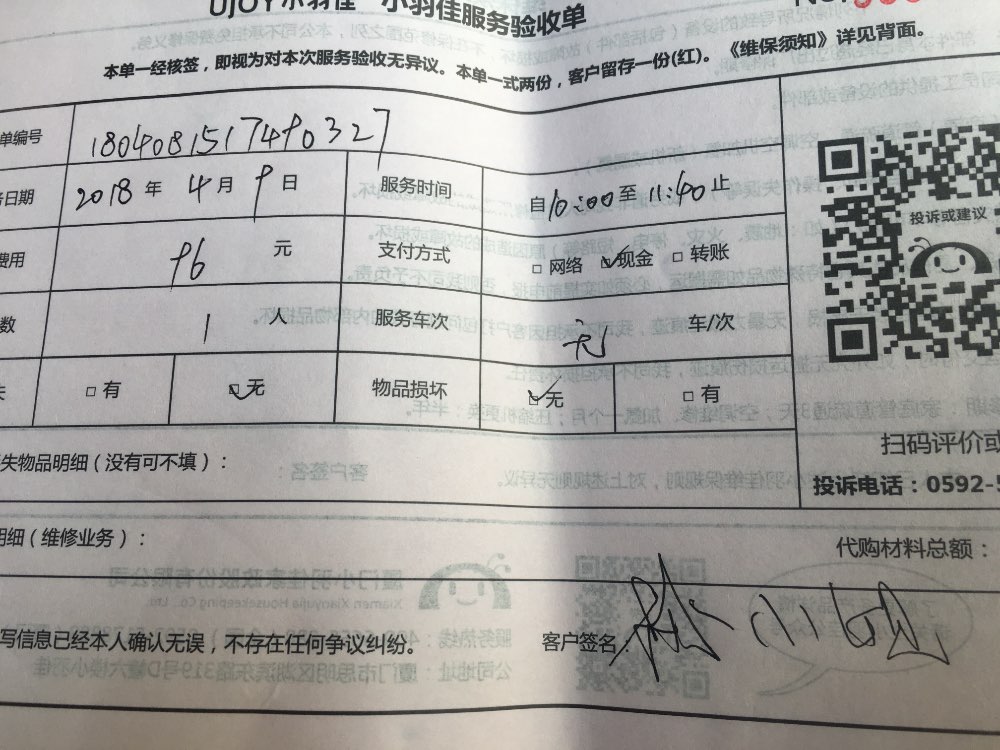 小羽佳服务验收单
本单一经核签，即视为对本次服务验收无异议。本单一式两份，客户留存一份(红)。《维保须知》详见背面。
单编号 1804081517490327
日期 2018 年 4 月 9 日 服务时间 自10:00至11:40止
费用 96 元 支付方式 □ 网络 ☑现金 □ 转账
数 1 人 服务车次 车/次
失 □ 有 ☑无 物品损坏 ☑无 □ 有
投诉或建议
扫码评价或
失物品明细（没有可不填）：
投诉电话：0592-5
明细（维修业务）：
代购材料总额：
写信息已经本人确认无误，不存在任何争议纠纷。 客户签名